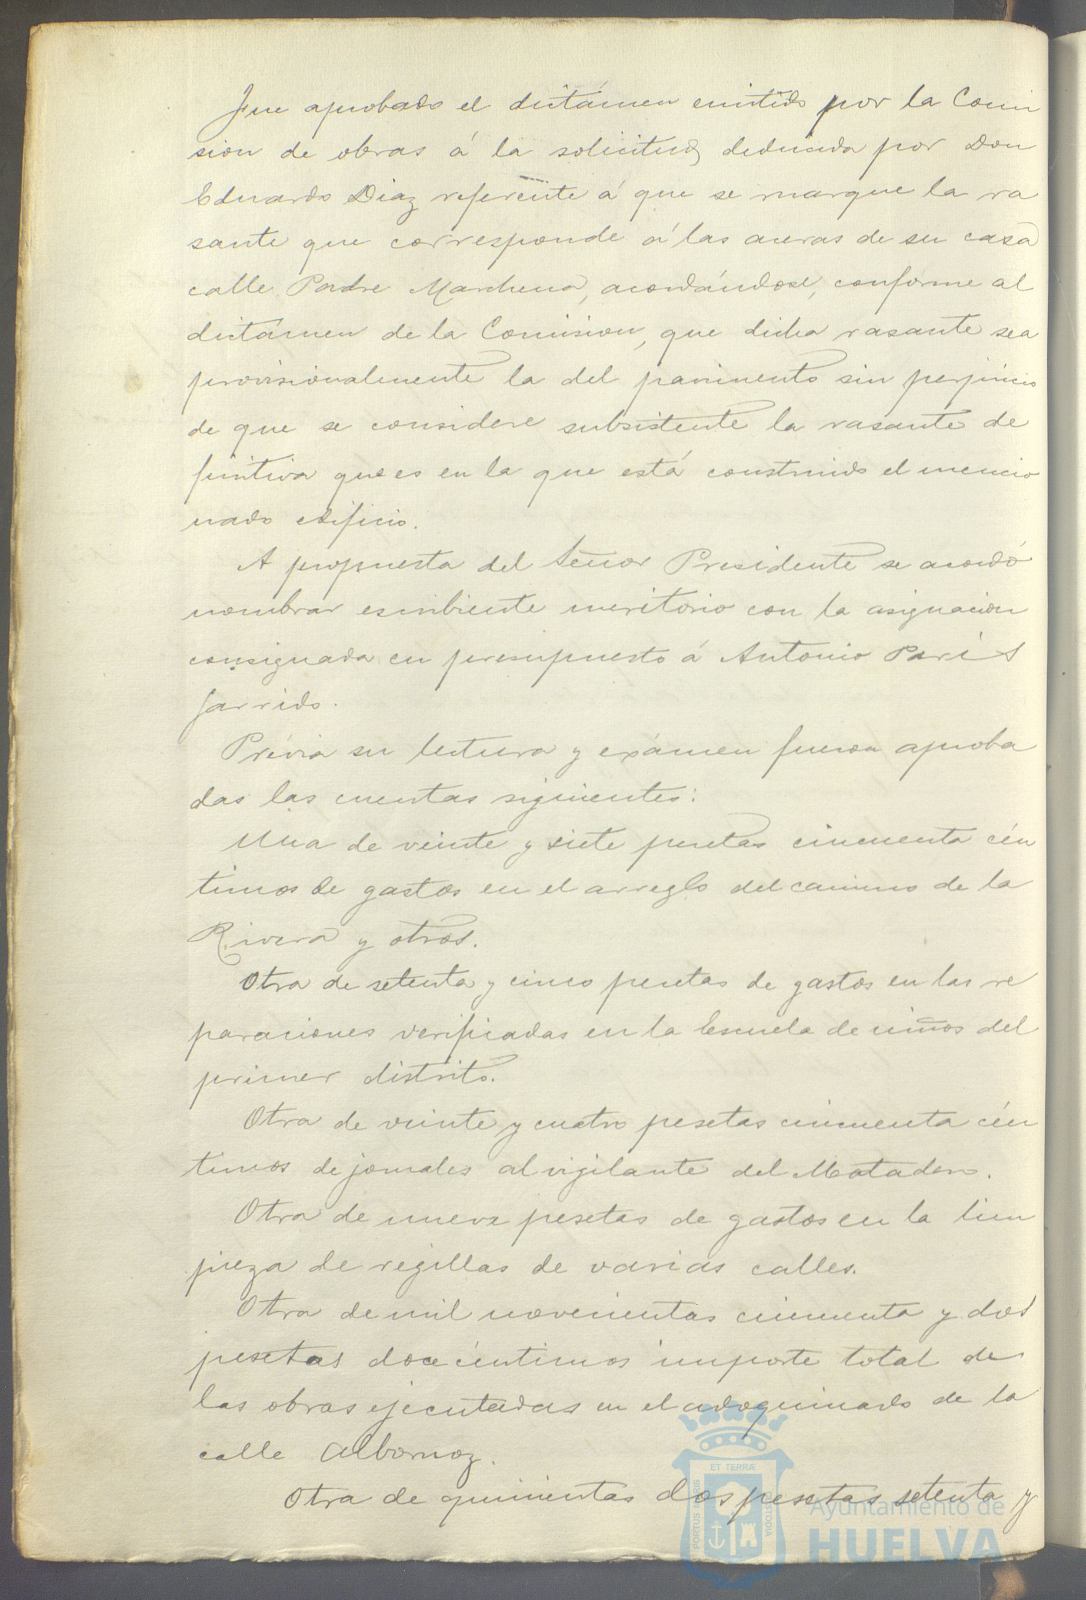 Fue aprobado el dictámen emitido por la Comi
sion de obras á la solicitud deducida por Don
Eduardo Diaz referente á que se marque la ra
sante que corresponde á las aceras de su casa
calle Padre Marchena, acordándose, conforme al
dictámen de la Comision, que dicha rasante sea
provisionalmente la del pavimento sin perjuicio
de que se considere subsistente la rasante de
finitiva que es en la que está construido el mencio
nado edificio.
A propuesta del Señor Presidente se acordó
nombrar escribiente meritorio con la asignacion
consignada en presupuesto á Antonio Paris
Garrido.
Prévia su lectura y exámen fueron aproba
das las cuentas siguientes:
Una de veinte y siete pesetas cincuenta cén
timos de gastos en el arreglo del camino de la
Rivera y otros.
Otra de setenta y cinco pesetas de gastos en las re
paraciones verificadas en la Escuela de niños del
primer distrito.
Otra de veinte y cuatro pesetas cincuenta cén
timos de jornales al vigilante del Matadero.
Otra de nueve pesetas de gastos en la lim
pieza de regillas de varias calles.
Otra de mil novecientas cincuenta y dos
pesetas doce céntimos importe total de
las obras ejecutadas en el adoquinado de la
calle Albornoz.
Otra de quinientas dos pesetas setenta y
ET TERRÆ
PORTUS MARIS
CUSTODIA
Ayuntamiento de
HUELVA